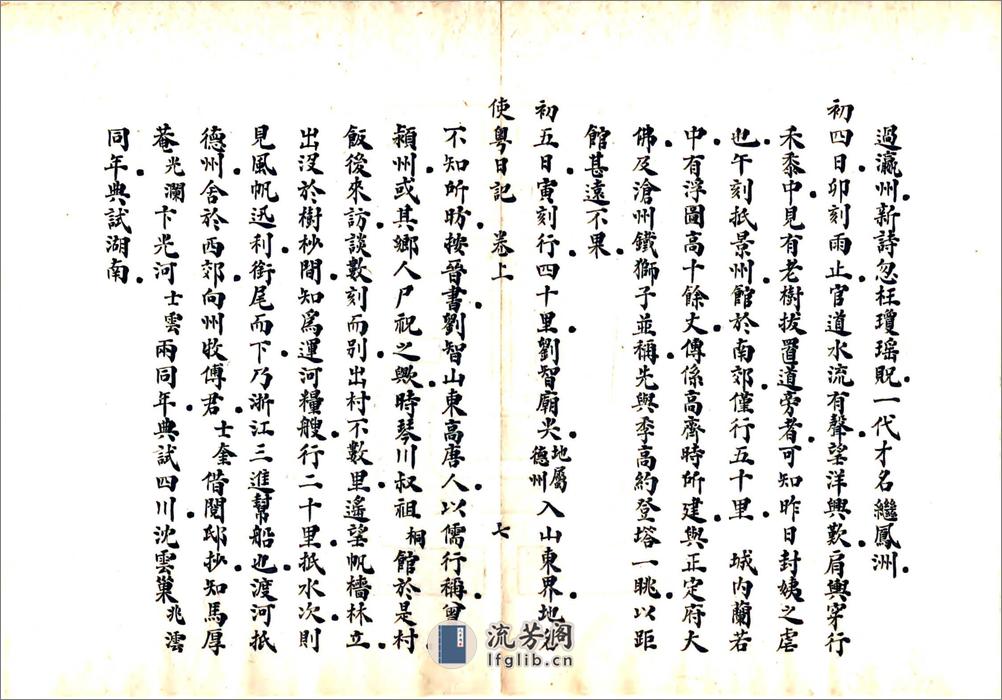 過瀛州新詩忽枉瓊瑶貺一代才名繼鳳洲
初四日卯刻雨止官道水流有聲望洋興歎肩輿穿行
禾黍中見有老樹拔置道旁者可知昨日封姨之虐
也午刻抵景州館於南郊僅行五十里 城内蘭若
中有浮圖高十餘丈傳係高齊時所建與正定府大
佛及滄州鐵獅子並稱先與季高約登塔一眺以距
館甚遠不果
初五日寅刻行四十里劉智廟尖地屬德州入山東界地
使粵日記 卷上 七
不知所昉按晉書劉智山東高唐人以儒行稱曾
潁州或其鄉人尸祀之歟時琴川叔祖桐館於是村
飯後來訪談數刻而别出村不數里遙望帆檣林立
出没於樹杪間知爲運河糧艘行二十里抵水次則
見風帆迅利銜尾而下乃浙江三進幫船也渡河抵
德州舍於西郊向州牧傅君士奎借閱邸抄知馬厚
菴光瀾卞光河士雲兩同年典試四川沈雲巢兆澐
同年典試湖南
流芳閣
lfglib.cn